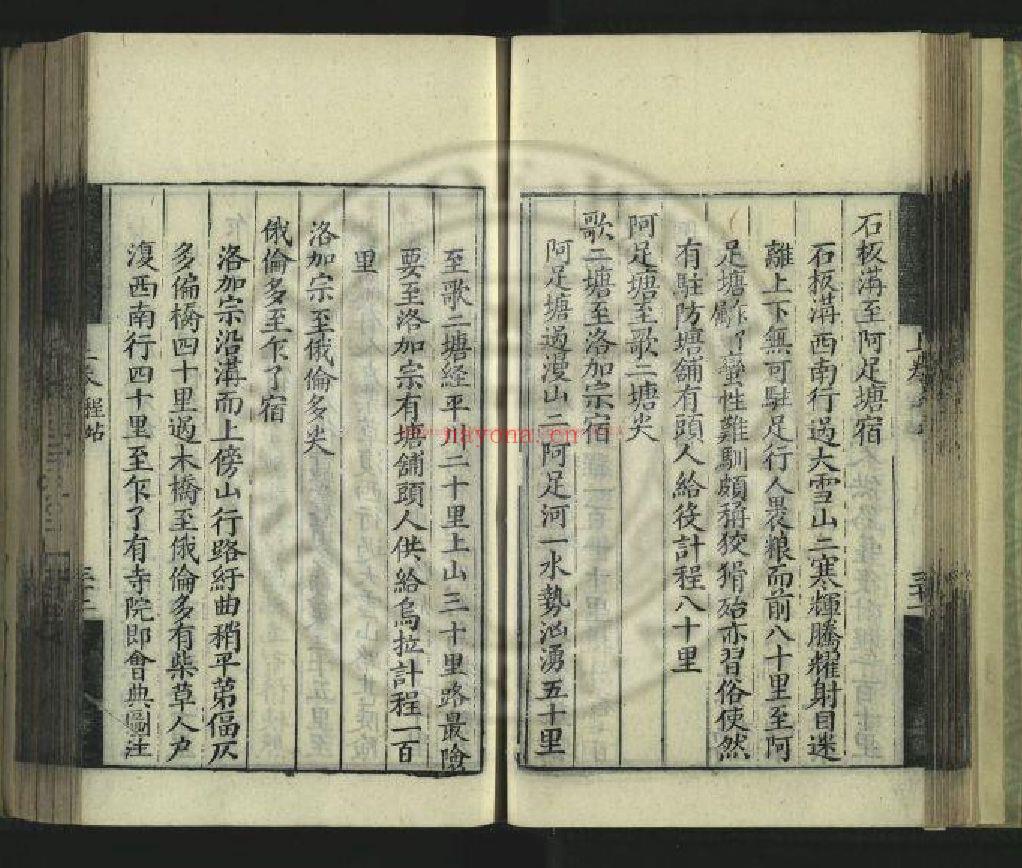 石板溝至阿足塘宿
石板溝西南行過大雪山二寒輝騰耀射目迷
離上下無可駐足行人畏糧而前八十里至阿
足塘蠻性難馴頗稱狡猾殆亦習俗使然
有駐防塘舖有頭人給役計程八十里
阿足塘至歌二塘尖
歌二塘至洛加宗宿
阿足塘過漫山二阿足河一水勢洶湧五十里
至歌二塘経平川二十里上山三十里路最險
要至洛加宗有塘舖頭人供給烏拉計程一百
里
洛加宗至俄倫多尖
俄倫多至乍了宿
洛加宗沿溝而上傍山行路紆曲稍平第偪仄
多偏橋四十里過木橋至俄倫多有柴草人户
復西南行四十里至乍了有寺院即會典圖注
程站
nayona.cn